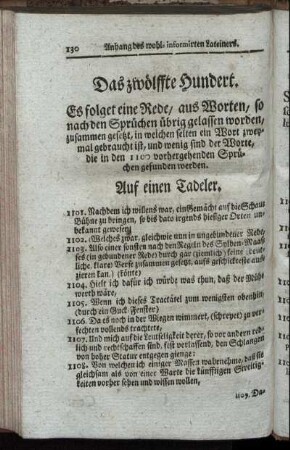 130 Anhang des wohl-informirten Lateiners.
Das zwölffte Hundert.
Es folget eine Rede, aus Worten, so
nach den Sprüchen übrig gelassen worden,
zusammen gesetzt, in welchen selten ein Wort zwey-
mal gebraucht ist, und wenig sind der Worte,
die in den 1100 vorhergehenden Sprü-
chen gefunden werden.
Auf einen Tadeler.
1101. Nachdem ich willens war, ein Gemächt auf die Schau-
Bühne zu bringen, so bis dato irgends hiesiger Orten un-
bekannt gewesen
1102. (Welches zwar, gleichwie nun in ungebundener Rede,
1103. Also einer sonsten nach den Regeln des Sylben-Maas-
ses (in gebundener Rede) durch gar (ziemlich)
liche, klare Verse zusammen gesetzt, aufs geschickteste aus-
zieren kan.) (könte)
1104. Hielt ich dafür ich würde was thun, daß der Mühe
werth wäre,
1105. Wenn ich dieses Tractätel zum wenigsten obenhin
(durch ein Guck-Fenster)
1106. Da es noch in der Wiegen wimmert, (schreyet) zu ver-
fechten vollends trachtete,
1107. Und mich auf die Leutseligkeit derer, so vor andern red-
lich und rechtschaffen sind, fest verlassend, den Schlangen
von hoher Statur entgegen gienge:
1108. Von welchen ich einiger Massen wahrnehme, daß sie
gleichsam als von einer Warte die künfftigen Streitig-
keiten vorher sehen und wissen wollen,
1109. Da-